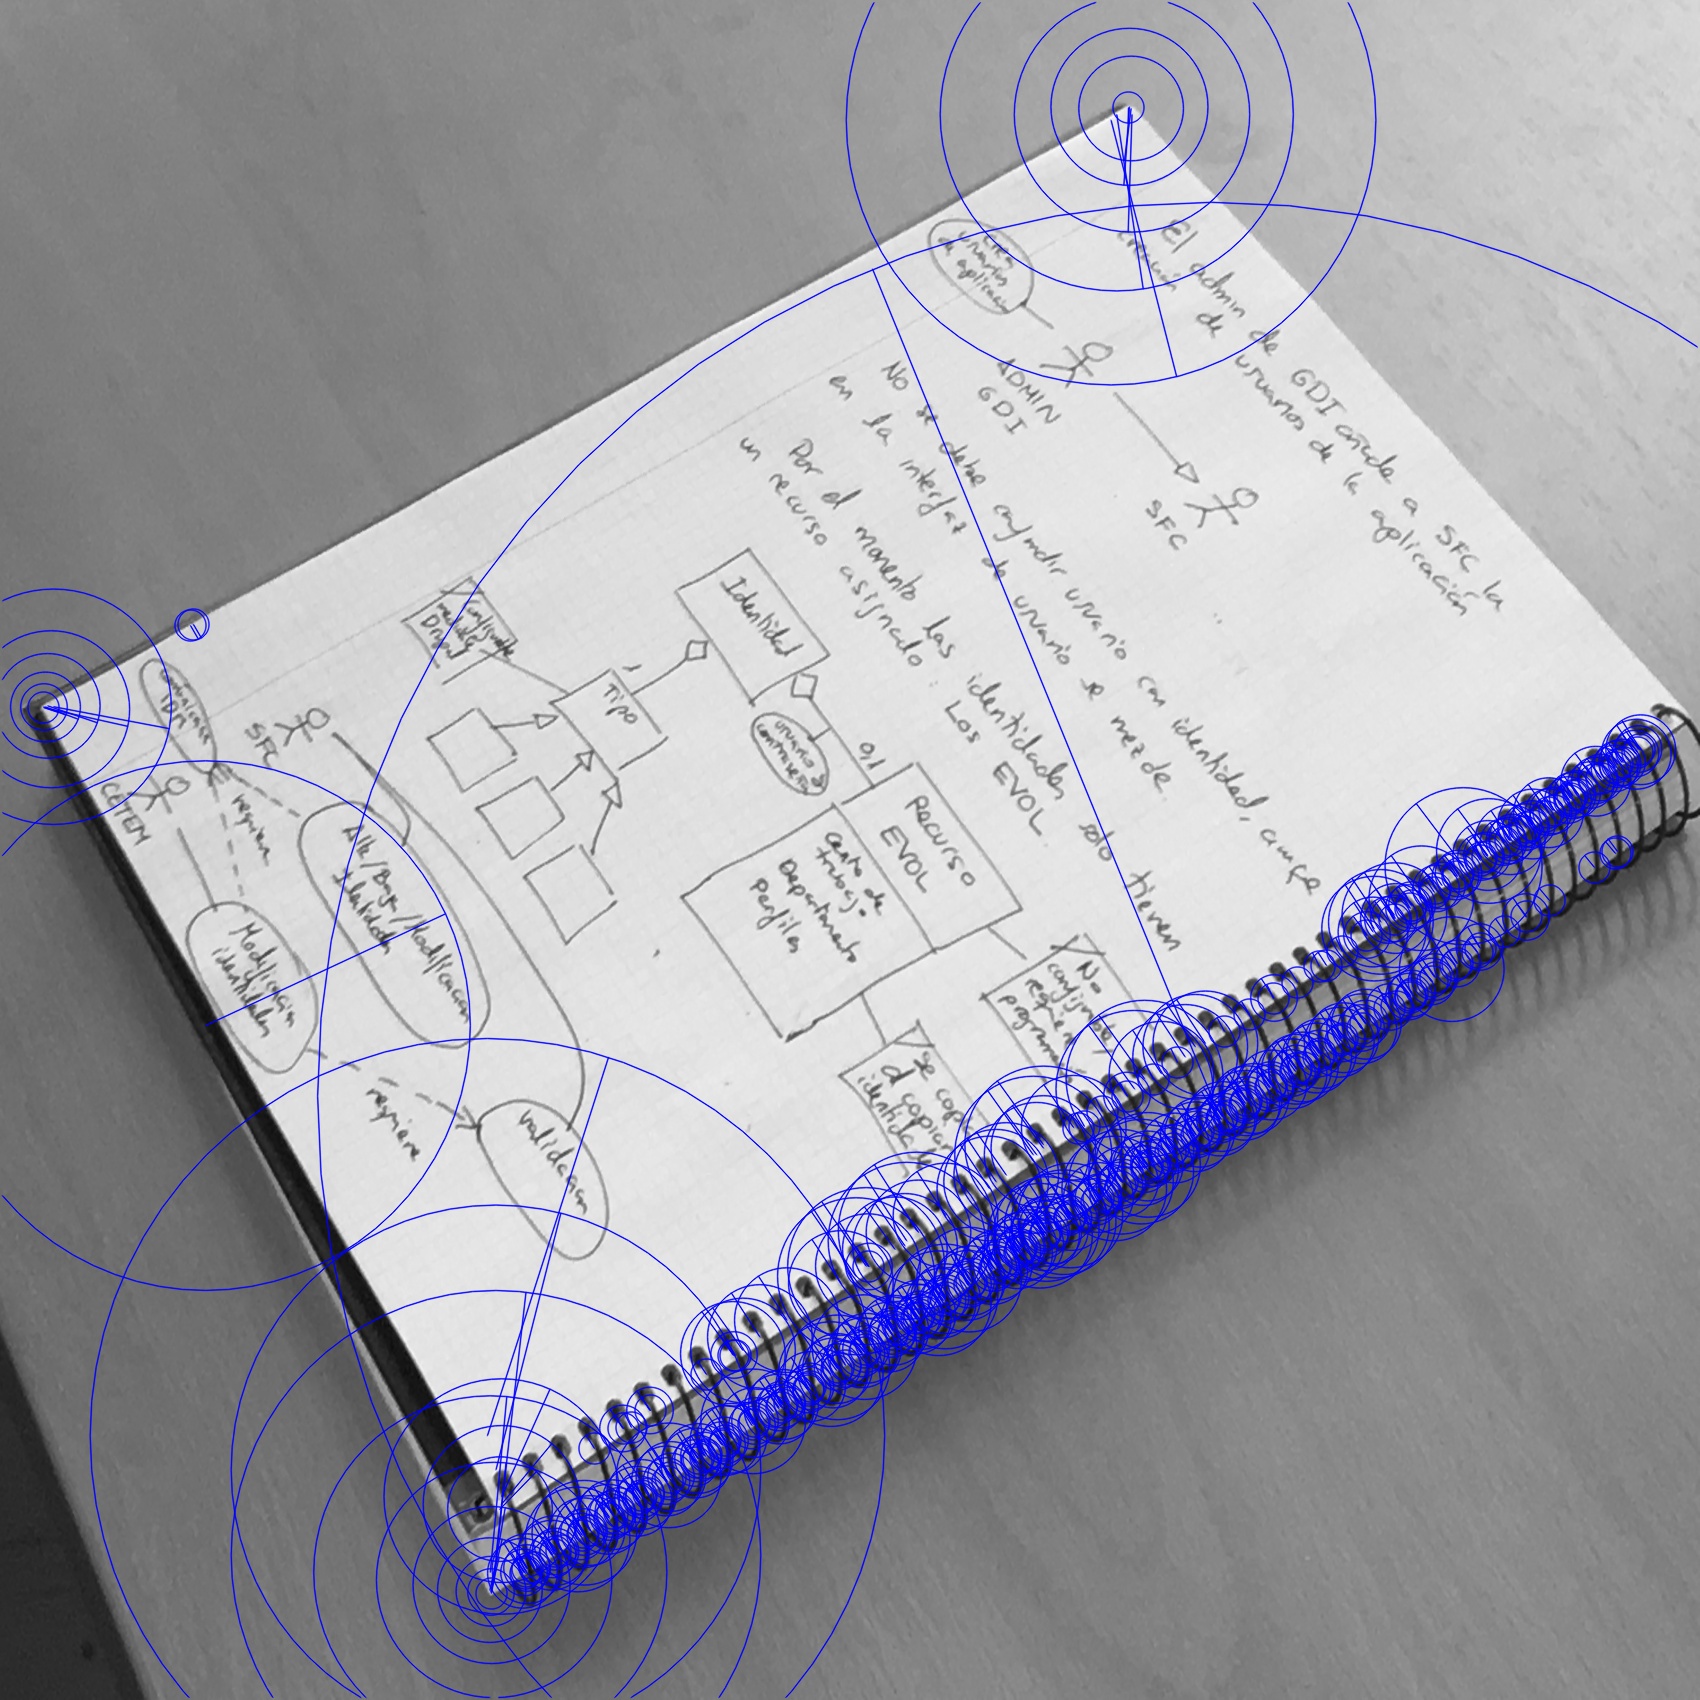 El admin de GDI añade a SFC la
creación de usuarios de la aplicación
Crea
usuarios
de aplicación
ADMIN
GDI
SFC
No se debe confundir usuario con identidad, aunque
en la interfaz de usuario se mezcle.
Por el momento las identidades solo tienen
un recurso asignado: Los EVOL
Identidad
Tipo
0,1
usuario y
contraseña
Recurso
EVOL
Centro de
trabajo
Departamento
Perfiles
No
configurable,
requiere
se copia
al copiar
identidad
SFC
CETEM
requiere
Alta/Baja/Modificacion
Identidades
Modificacion
identidades
requiere
Validacion